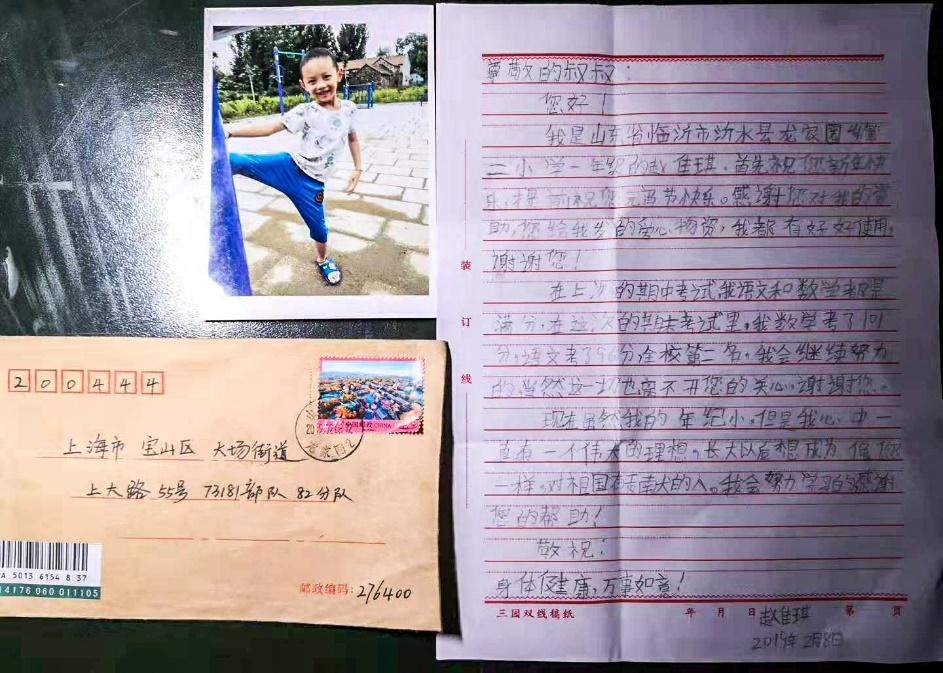 尊敬的叔叔：
您好！
我是山东省临沂市沂水县龙家圈乡第
二小学一年级的赵佳琪。首先祝您新年快
乐,提前祝您元宵节快乐。感谢您对我的资
助,您给我发的爱心物资,我都有好好使用。
谢谢您！
在上次的期中考试,我语文和数学都是
满分,在这次的期末考试里,我数学考了101
分,语文考了96分,全校第二名,我会继续努力
的,当然这一切也离不开您的关心。谢谢您。
现在虽然我的年纪小,但是我心中一
直有一个伟大的理想。长大以后想成为像您
一样,对祖国有贡献的人。我会努力学习的,感谢
您的帮助！
敬祝：
身体健康,万事如意！
三园双线稿纸 年 月 日 第 页
赵佳琪
2019年2月8日
装
订
线
200444
中国邮政 CHINA
上海市 宝山区 大场街道
上大路 55号 73181部队 82分队
A 5013 6154 8 37
14176 060 011105
邮政编码: 276400